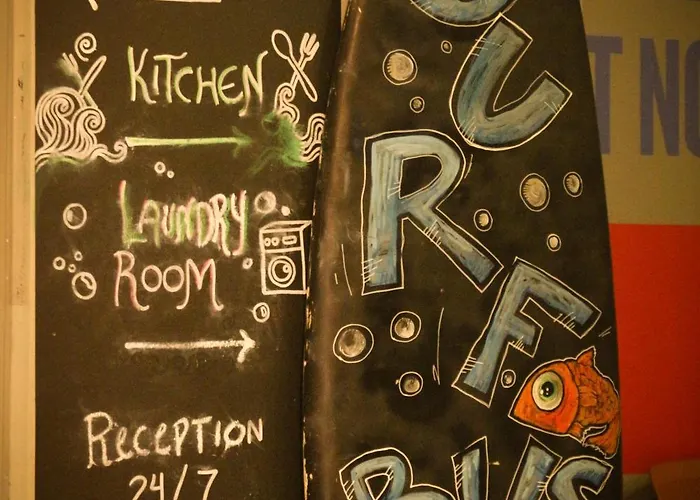 KITCHEN
LAUNDRY
ROOM
RECEPTION
24/7
SURF
T NO